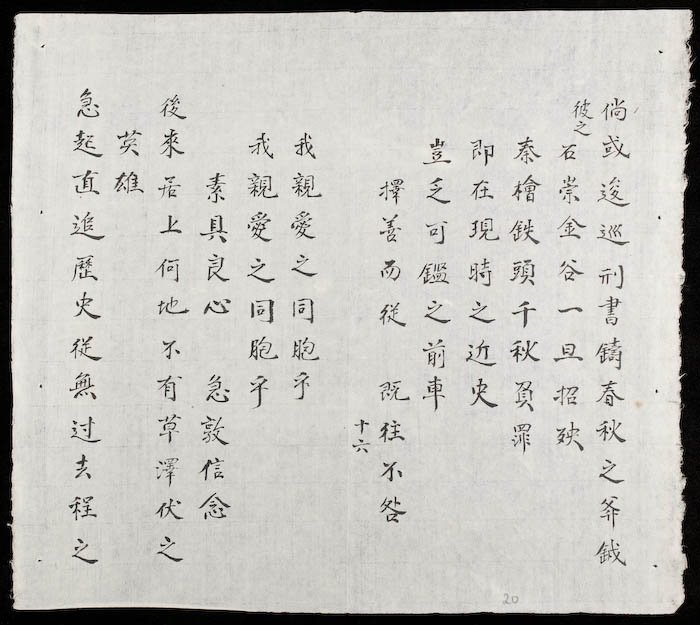 倘或逡巡刑書鑄春秋之斧鉞
彼之石崇金谷一旦招殃
秦檜鉄頭千秋負罪
即在現時之近史
豈乏可鑑之前車
擇善而從 既往不咎
十六
我親愛之同胞乎
我親愛之同胞乎
素具良心 急敦信念
後來居上何地不有草澤伏之
英雄
急起直追歷史從無过去程之
20